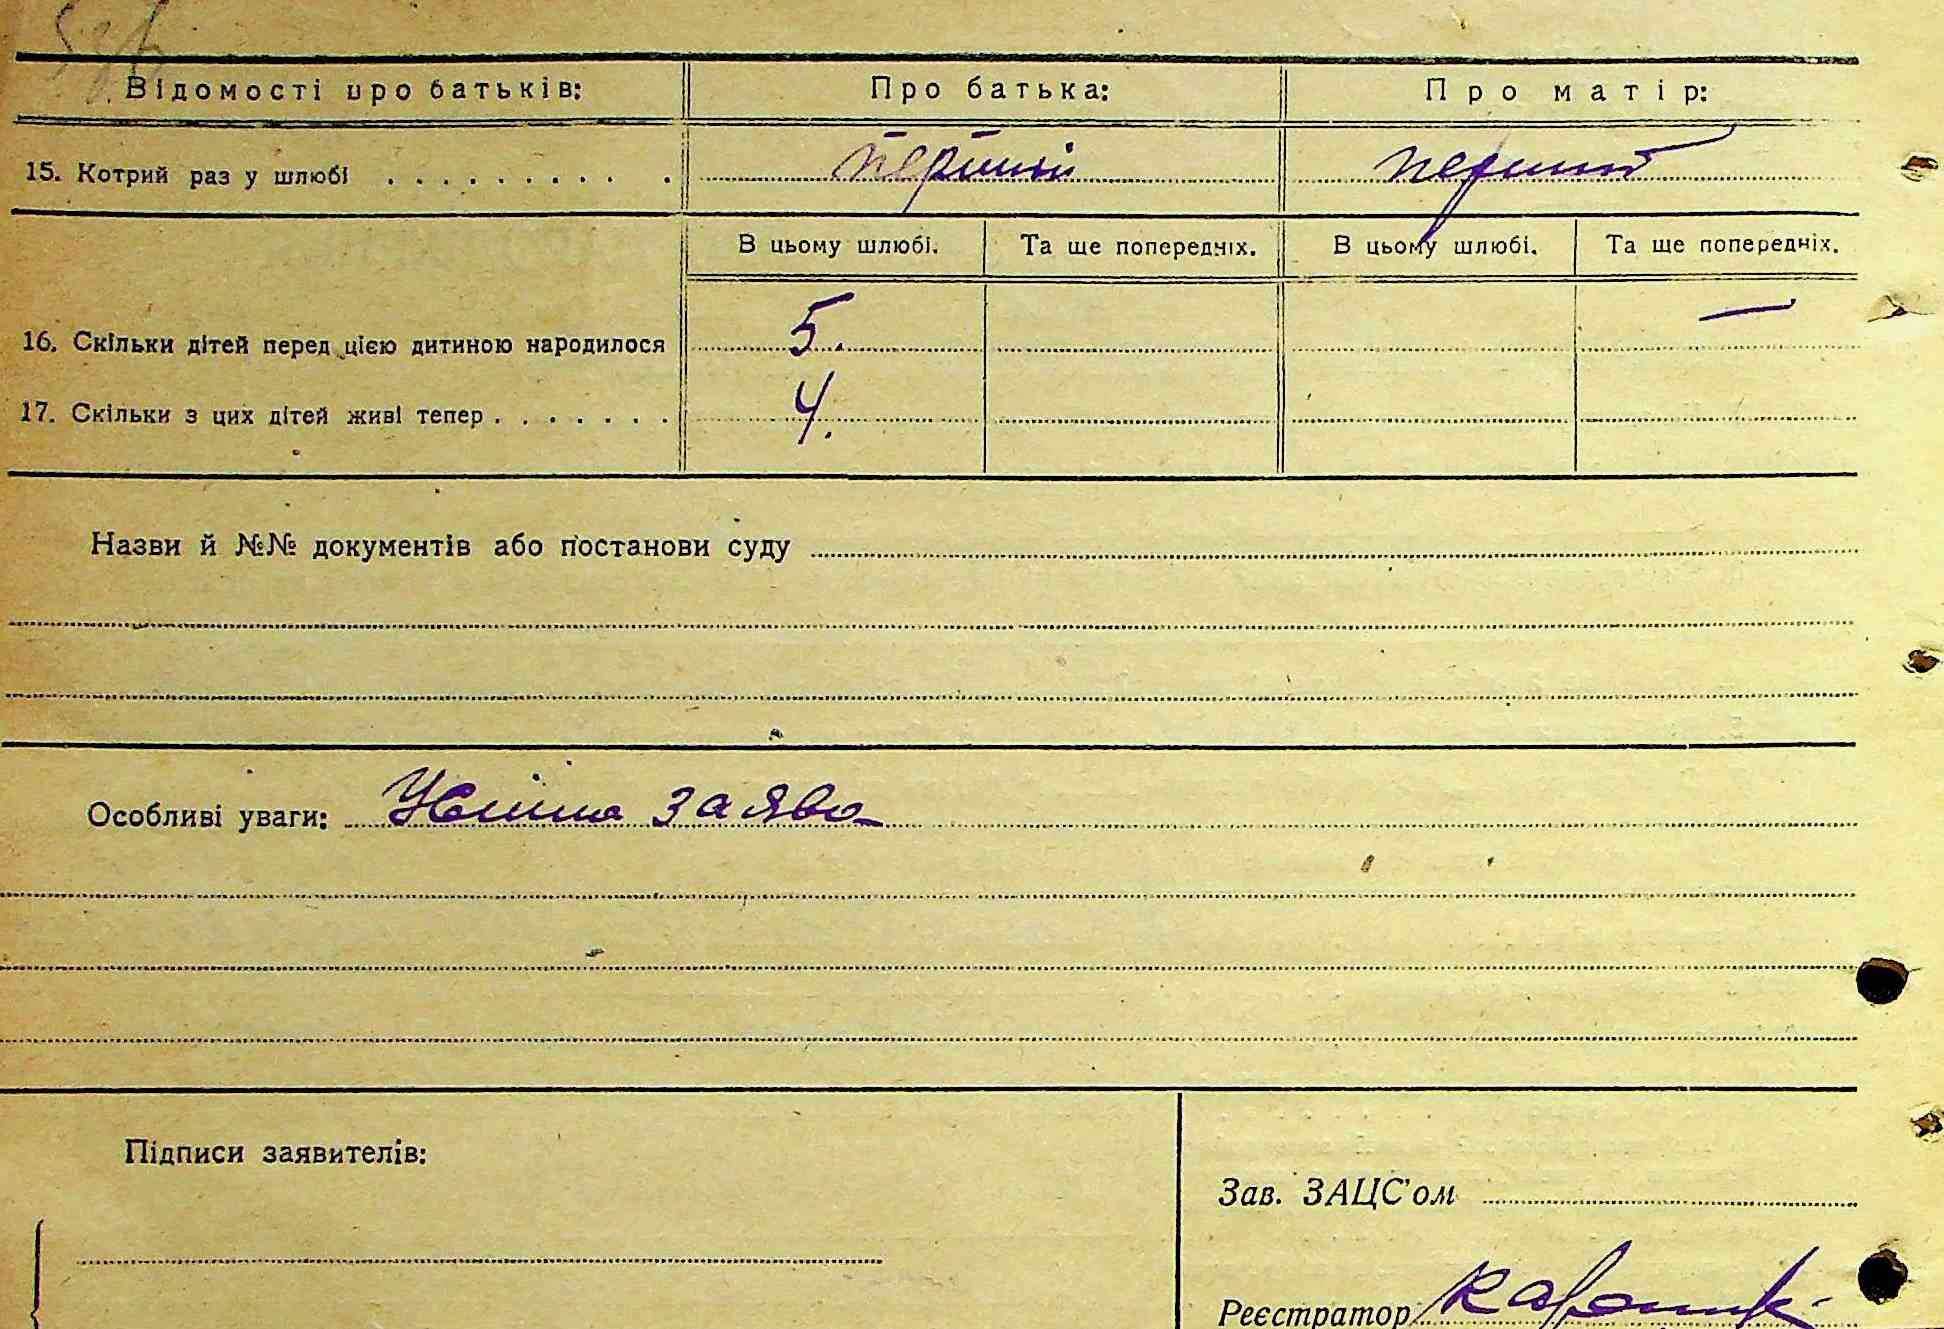 Відомості про батьків: Про батька: Про матір:
15. Котрий раз у шлюбі . . . . . . . . . . . перший перший
В цьому шлюбі. Та ще попередніх. В цьому шлюбі. Та ще попередніх.
16. Скільки дітей перед цією дитиною народилося 5. —
17. Скільки з цих дітей живі тепер . . . . . . . 4.
Назви й №№ документів або постанови суду
Особливі уваги: Усніша заява
Підписи заявителів:
Зав. ЗАЦС'ом
Реєстратор